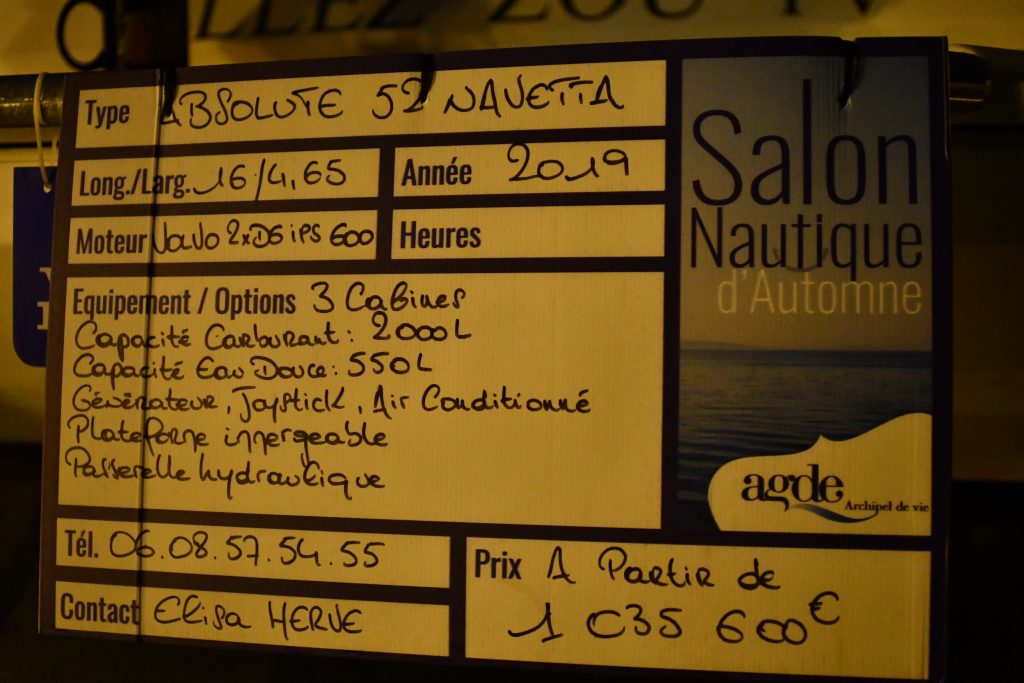 ALLEZ ZOU TV
Type ABSOLUTE 52 NAVETTA
Long./Larg. 16/4,65
Année 2019
Moteur VOLVO 2xD6 iPS 600
Heures
Equipement / Options 3 Cabines
Capacité Carburant : 2000L
Capacité Eau Douce : 550L
Générateur, Joystick, Air Conditionné
Plateforme immergeable
Passerelle hydraulique
Tél. 06.08.57.54.55
Contact Elisa HERVE
Prix A Partir de
1 035 600€
Salon
Nautique
d'Automne
agde
Archipel de vie